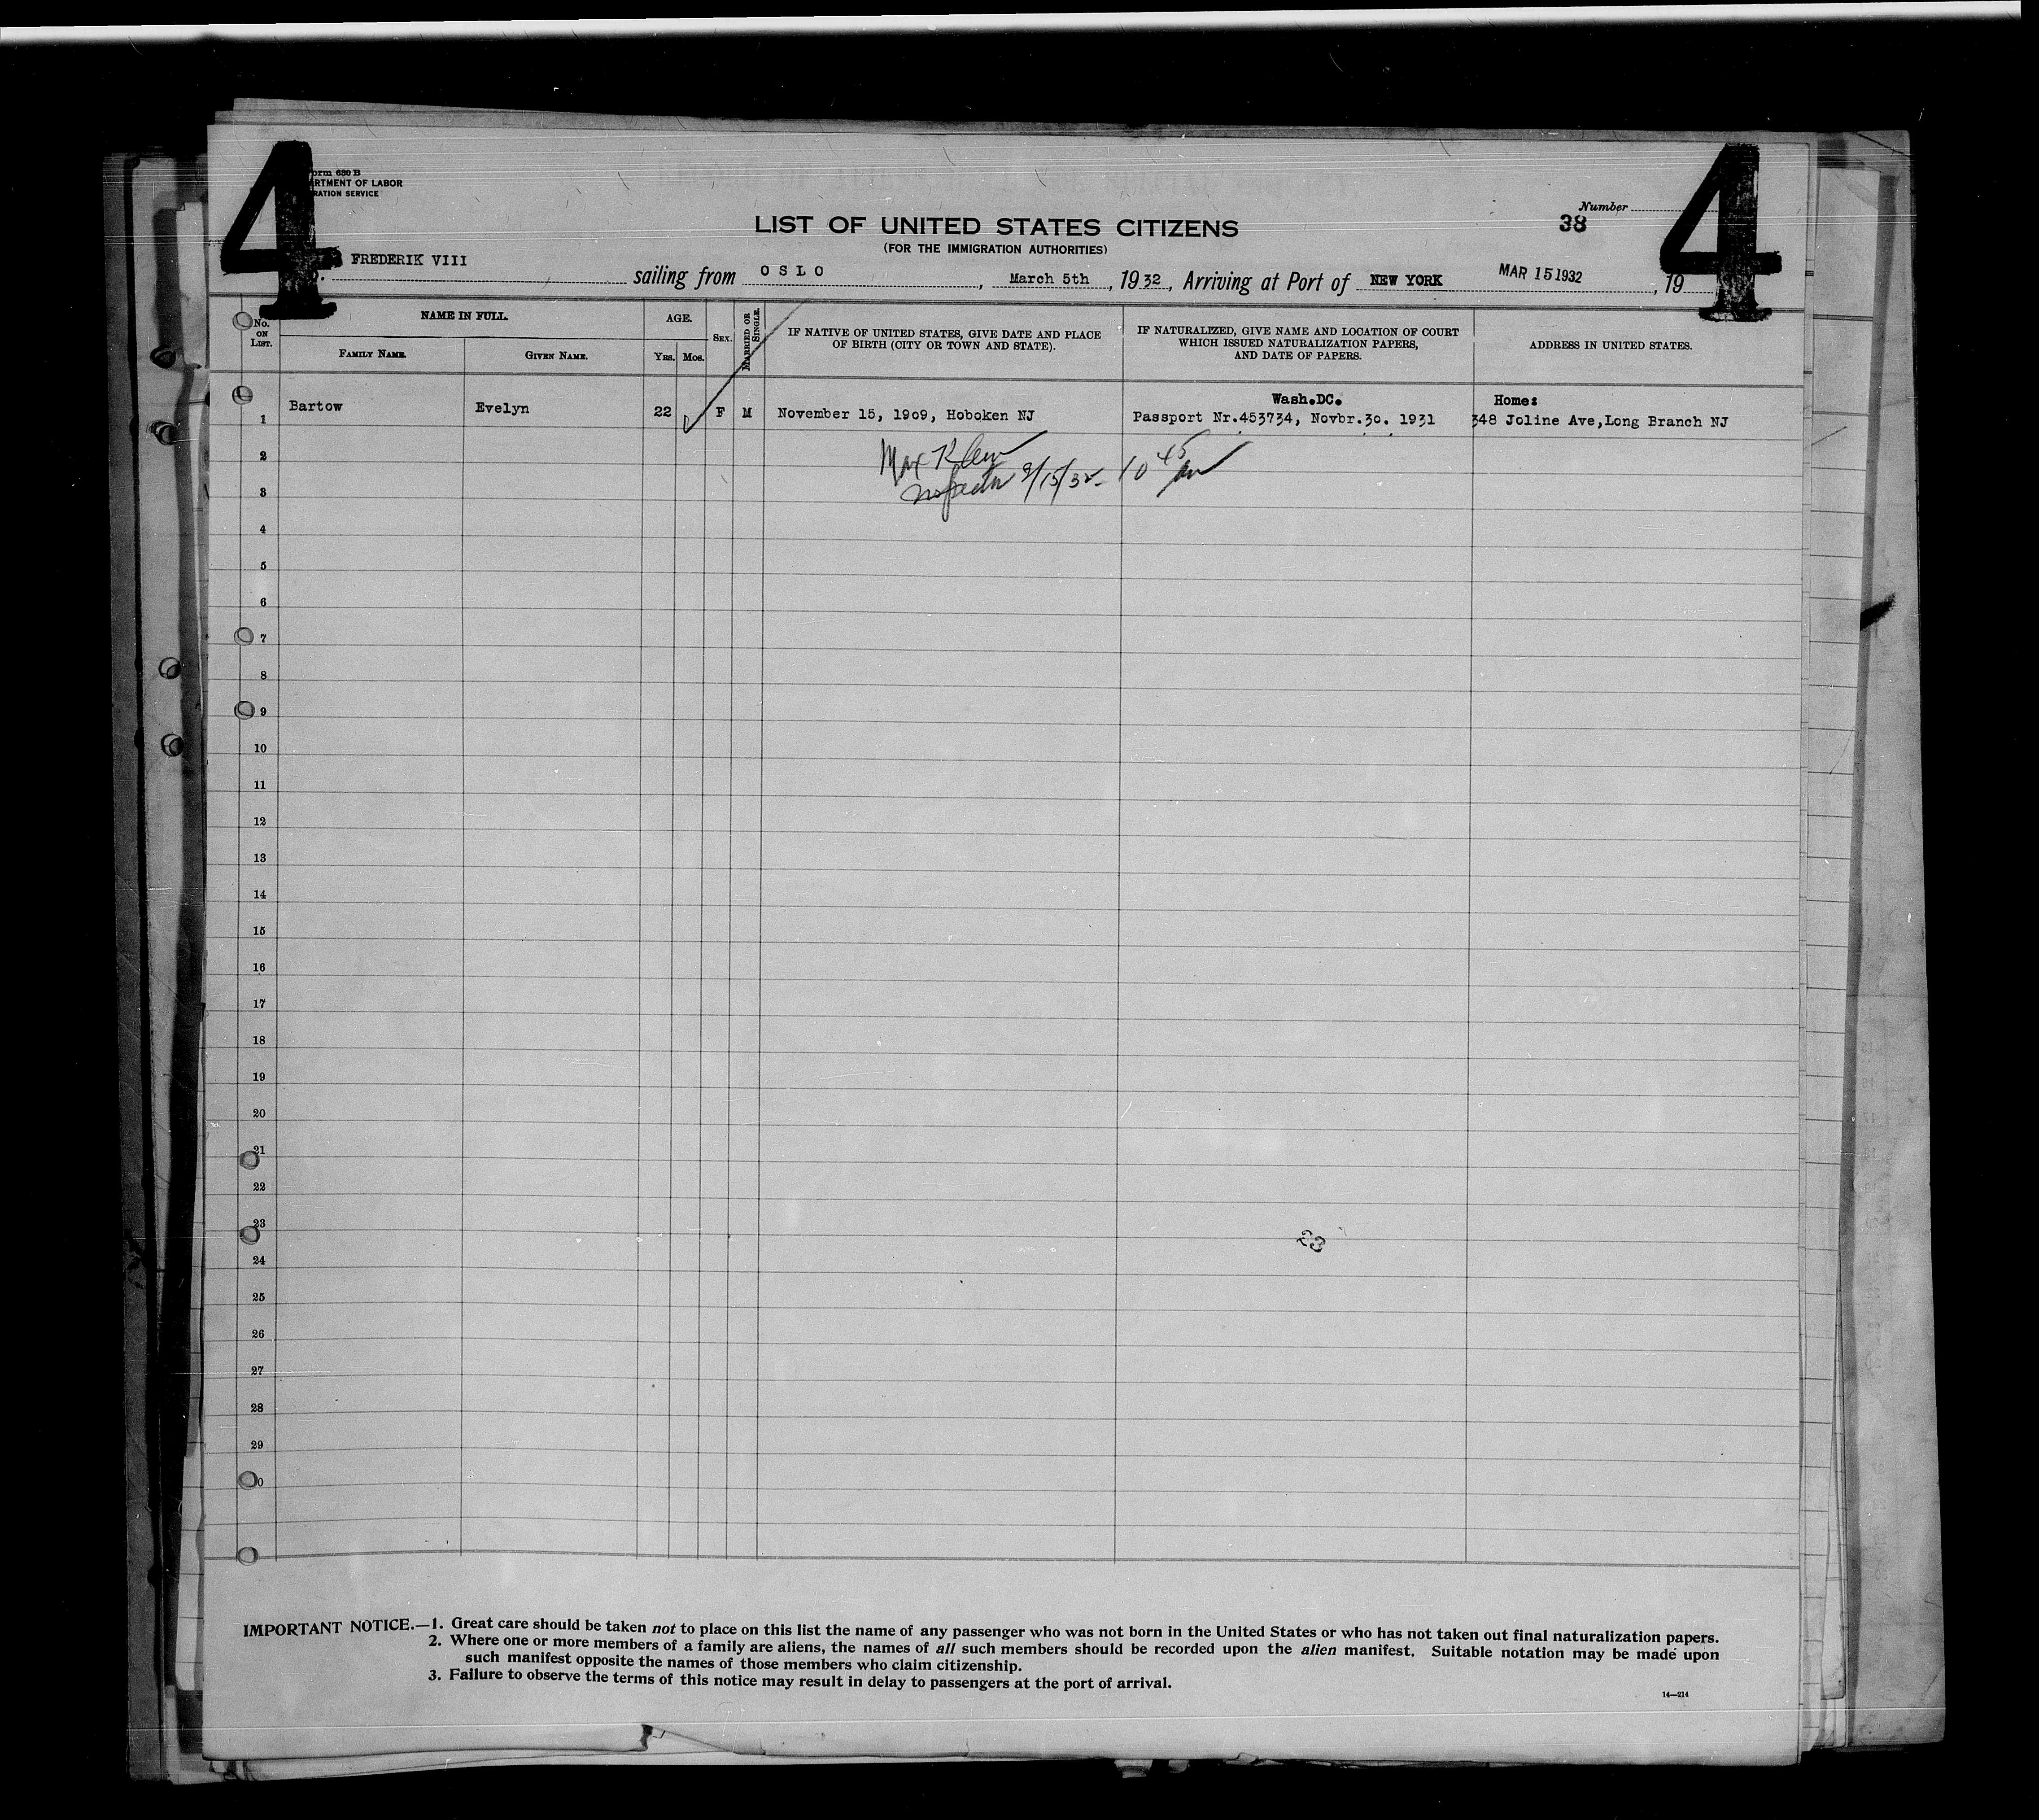 4
4
orm 630 B
RTMENT OF LABOR
RATION SERVICE
Number
38
LIST OF UNITED STATES CITIZENS
(FOR THE IMMIGRATION AUTHORITIES)
FREDERIK VIII sailing from OSLO, March 5th, 1932, Arriving at Port of NEW YORK MAR 15 1932, 19
No. ON LIST.
NAME IN FULL.
FAMILY NAME.
GIVEN NAME.
AGE.
YRS.
MOS.
SEX.
MARRIED OR SINGLE.
IF NATIVE OF UNITED STATES, GIVE DATE AND PLACE
OF BIRTH (CITY OR TOWN AND STATE).
IF NATURALIZED, GIVE NAME AND LOCATION OF COURT
WHICH ISSUED NATURALIZATION PAPERS,
AND DATE OF PAPERS.
ADDRESS IN UNITED STATES.
Wash.DC. Home:
1 Bartow Evelyn 22 F M November 15, 1909, Hoboken NJ Passport Nr.453734, Novbr.30. 1931 348 Joline Ave,Long Branch NJ
2 Max Klein
3 Inspector /15/32 10 45 am
4
5
6
7
8
9
10
11
12
13
14
15
16
17
18
19
20
21
22
23
23
24
25
26
27
28
29
0
IMPORTANT NOTICE.—1. Great care should be taken not to place on this list the name of any passenger who was not born in the United States or who has not taken out final naturalization papers.
2. Where one or more members of a family are aliens, the names of all such members should be recorded upon the alien manifest. Suitable notation may be made upon
such manifest opposite the names of those members who claim citizenship.
3. Failure to observe the terms of this notice may result in delay to passengers at the port of arrival.
14—214